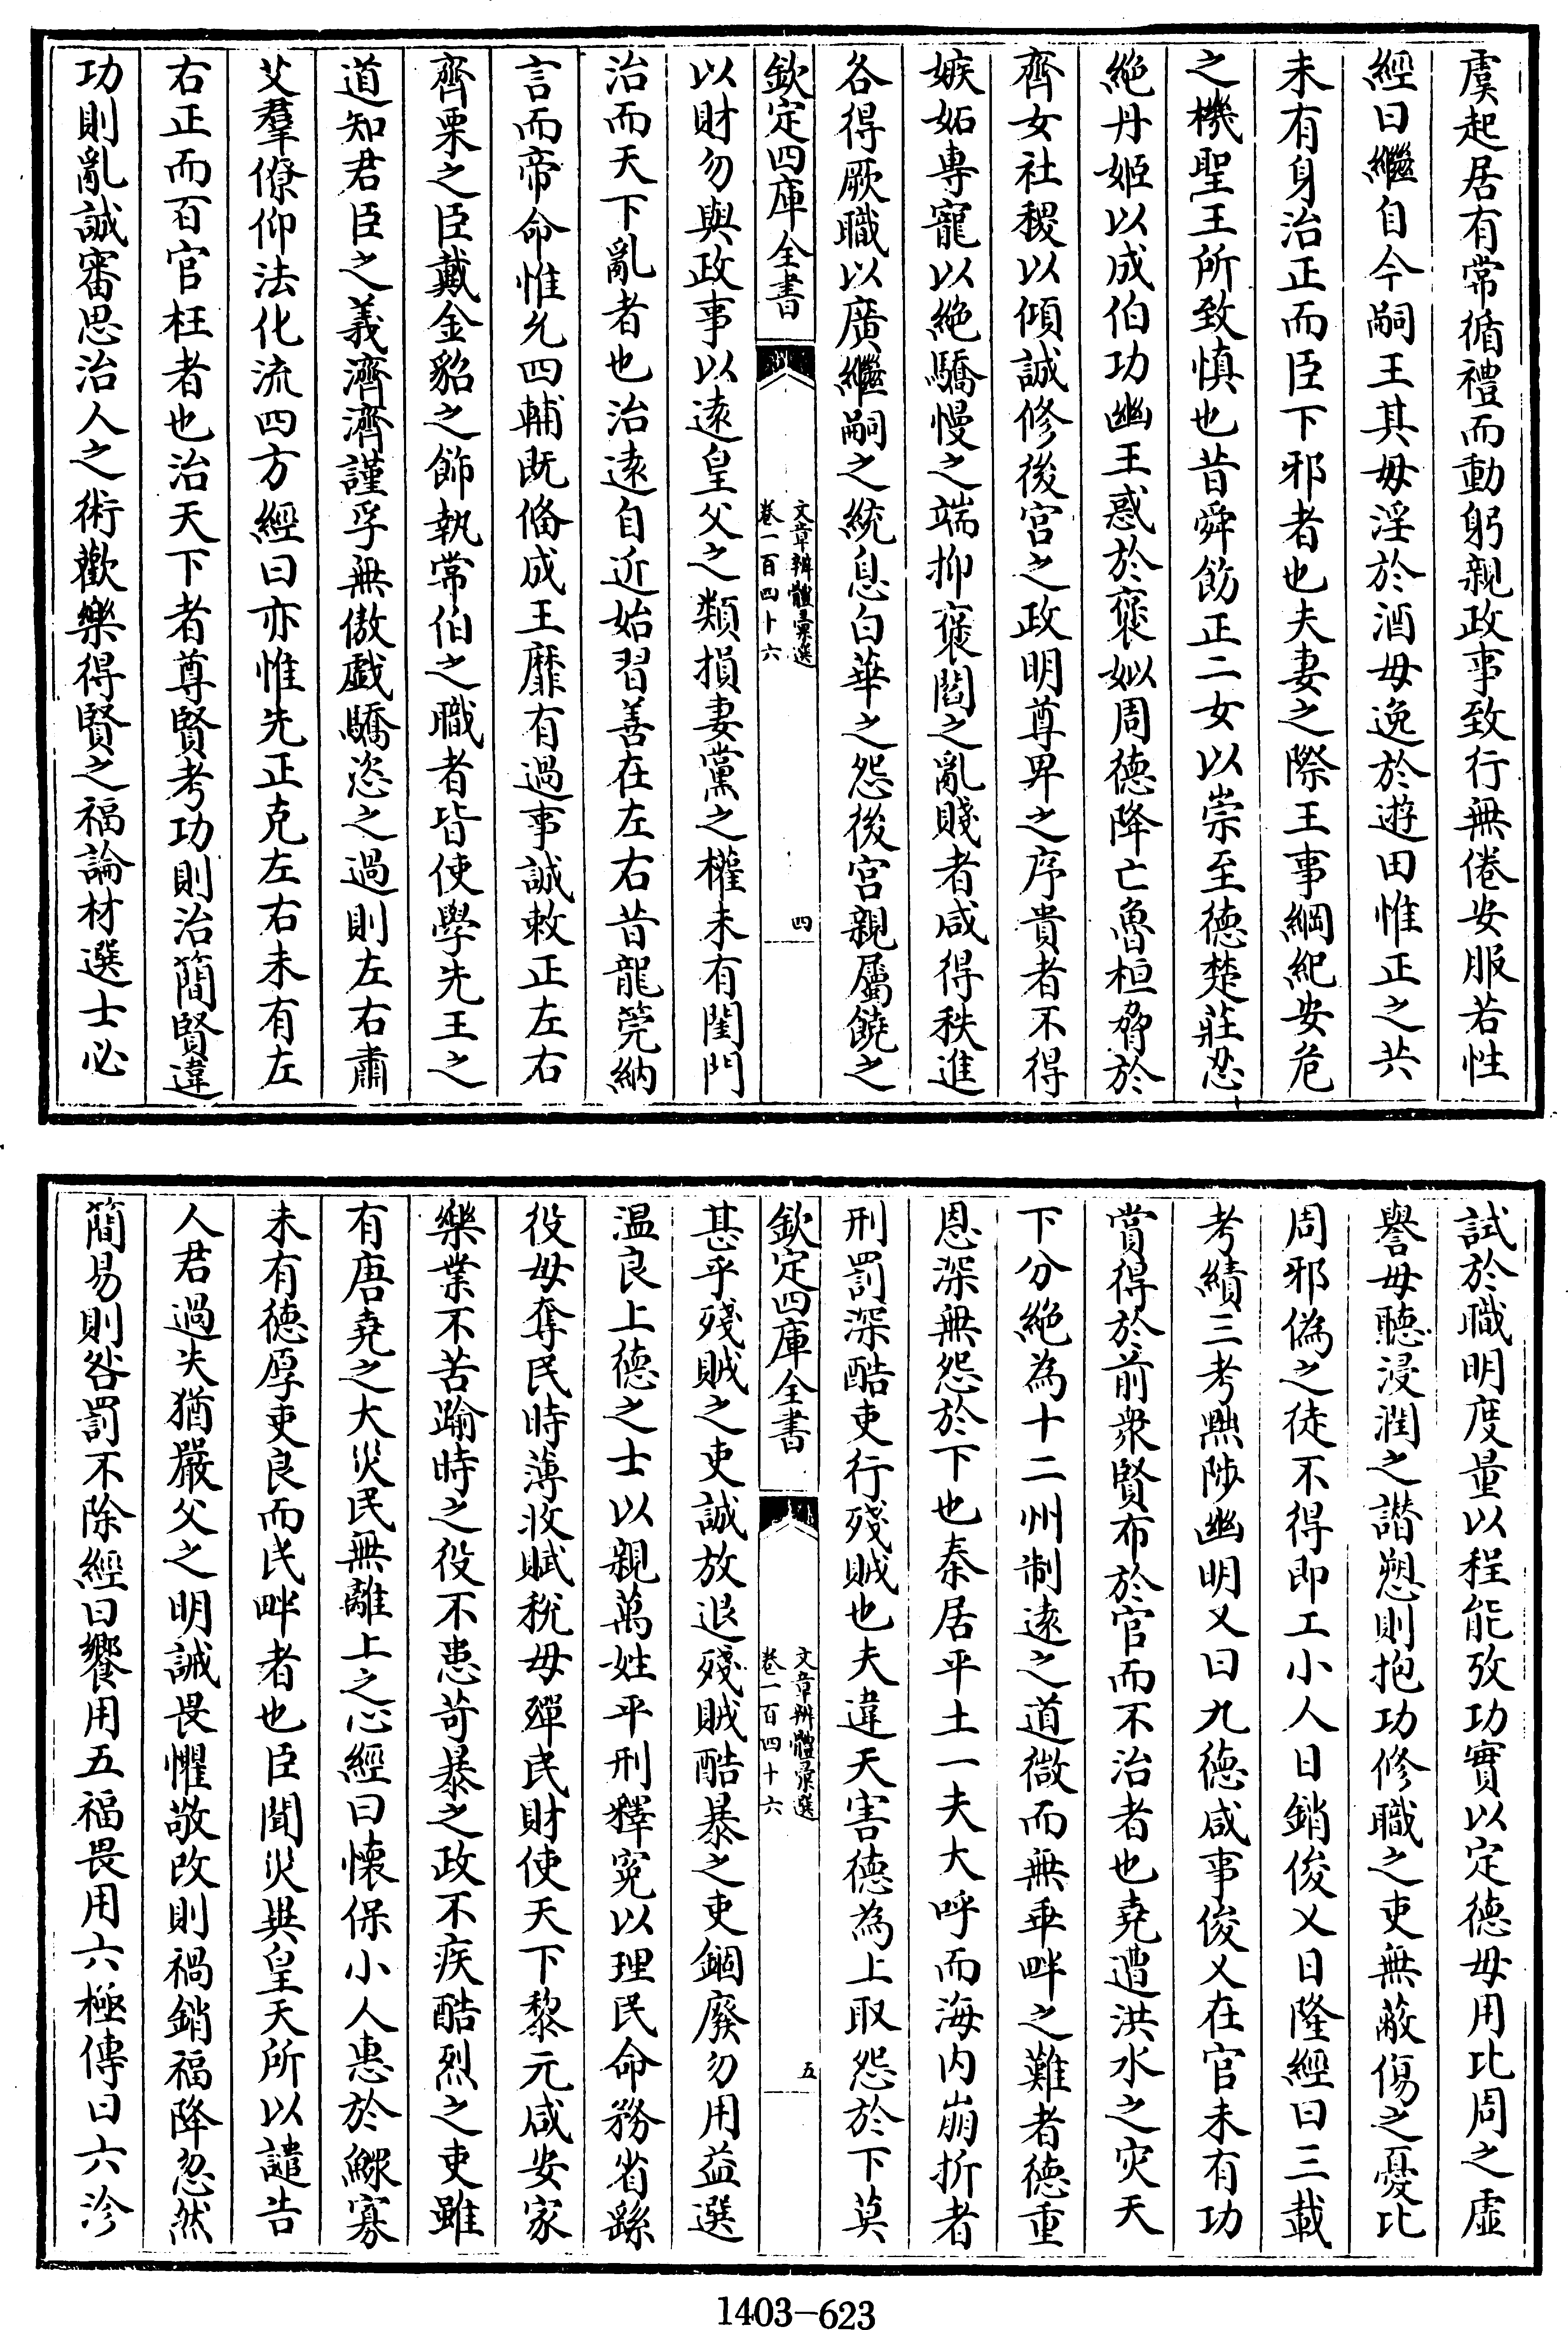 虞起居有常循禮而動躬親政事致行無倦安服若性
經曰繼自今嗣王其毋淫於酒毋逸於遊田惟正之共
未有身治正而臣下邪者也夫妻之際王事綱紀安危
之機聖王所致慎也昔舜飭正二女以崇至德楚莊忍
絶丹姬以成伯功幽王惑於褒姒周德降亡魯桓脅於
齊女社稷以傾誠修後宫之政明尊卑之序貴者不得
嫉妬專寵以絶驕慢之端抑褒閻之亂賤者咸得秩進
各得厥職以廣繼嗣之統息白華之怨後宫親屬饒之
欽定四庫全書
文章辨體彙選
卷一百四十六
四
以財勿與政事以遠皇父之類損妻黨之權未有閨門
治而天下亂者也治遠自近始習善在左右昔龍筦納
言而帝命惟允四輔既備成王靡有過事誠敕正左右
齊栗之臣戴金貂之飾執常伯之職者皆使學先王之
道知君臣之義濟濟謹孚無傲戲驕恣之過則左右肅
艾羣僚仰法化流四方經曰亦惟先正克左右未有左
右正而百官枉者也治天下者尊賢考功則治簡賢違
功則亂誠審思治人之術歡樂得賢之福論材選士必
試於職明度量以程能攷功實以定德毋用比周之虛
譽毋聽浸潤之譖愬則抱功修職之吏無蔽傷之憂比
周邪偽之徒不得即工小人日銷俊乂日隆經曰三載
考績三考黜陟幽明又曰九德咸事俊乂在官未有功
賞得於前衆賢布於官而不治者也堯遭洪水之灾天
下分絶為十二州制遠之道微而無乖畔之難者德重
恩深無怨於下也秦居平土一夫大呼而海内崩折者
刑罰深酷吏行殘賊也夫違天害德為上取怨於下莫
欽定四庫全書
文章辨體彙選
卷一百四十六
五
甚乎殘賊之吏誠放退殘賊酷暴之吏錮廢勿用益選
温良上德之士以親萬姓平刑釋寃以理民命務省繇
役毋奪民時薄收賦稅毋殫民財使天下黎元咸安家
樂業不苦踰時之役不患苛暴之政不疾酷烈之吏雖
有唐堯之大災民無離上之心經曰懷保小人惠於鰥寡
未有德厚吏良而民畔者也臣聞災異皇天所以譴告
人君過失猶嚴父之明誡畏懼敬改則禍銷福降忽然
簡易則咎罰不除經曰饗用五福畏用六極傳曰六沴
1403-623